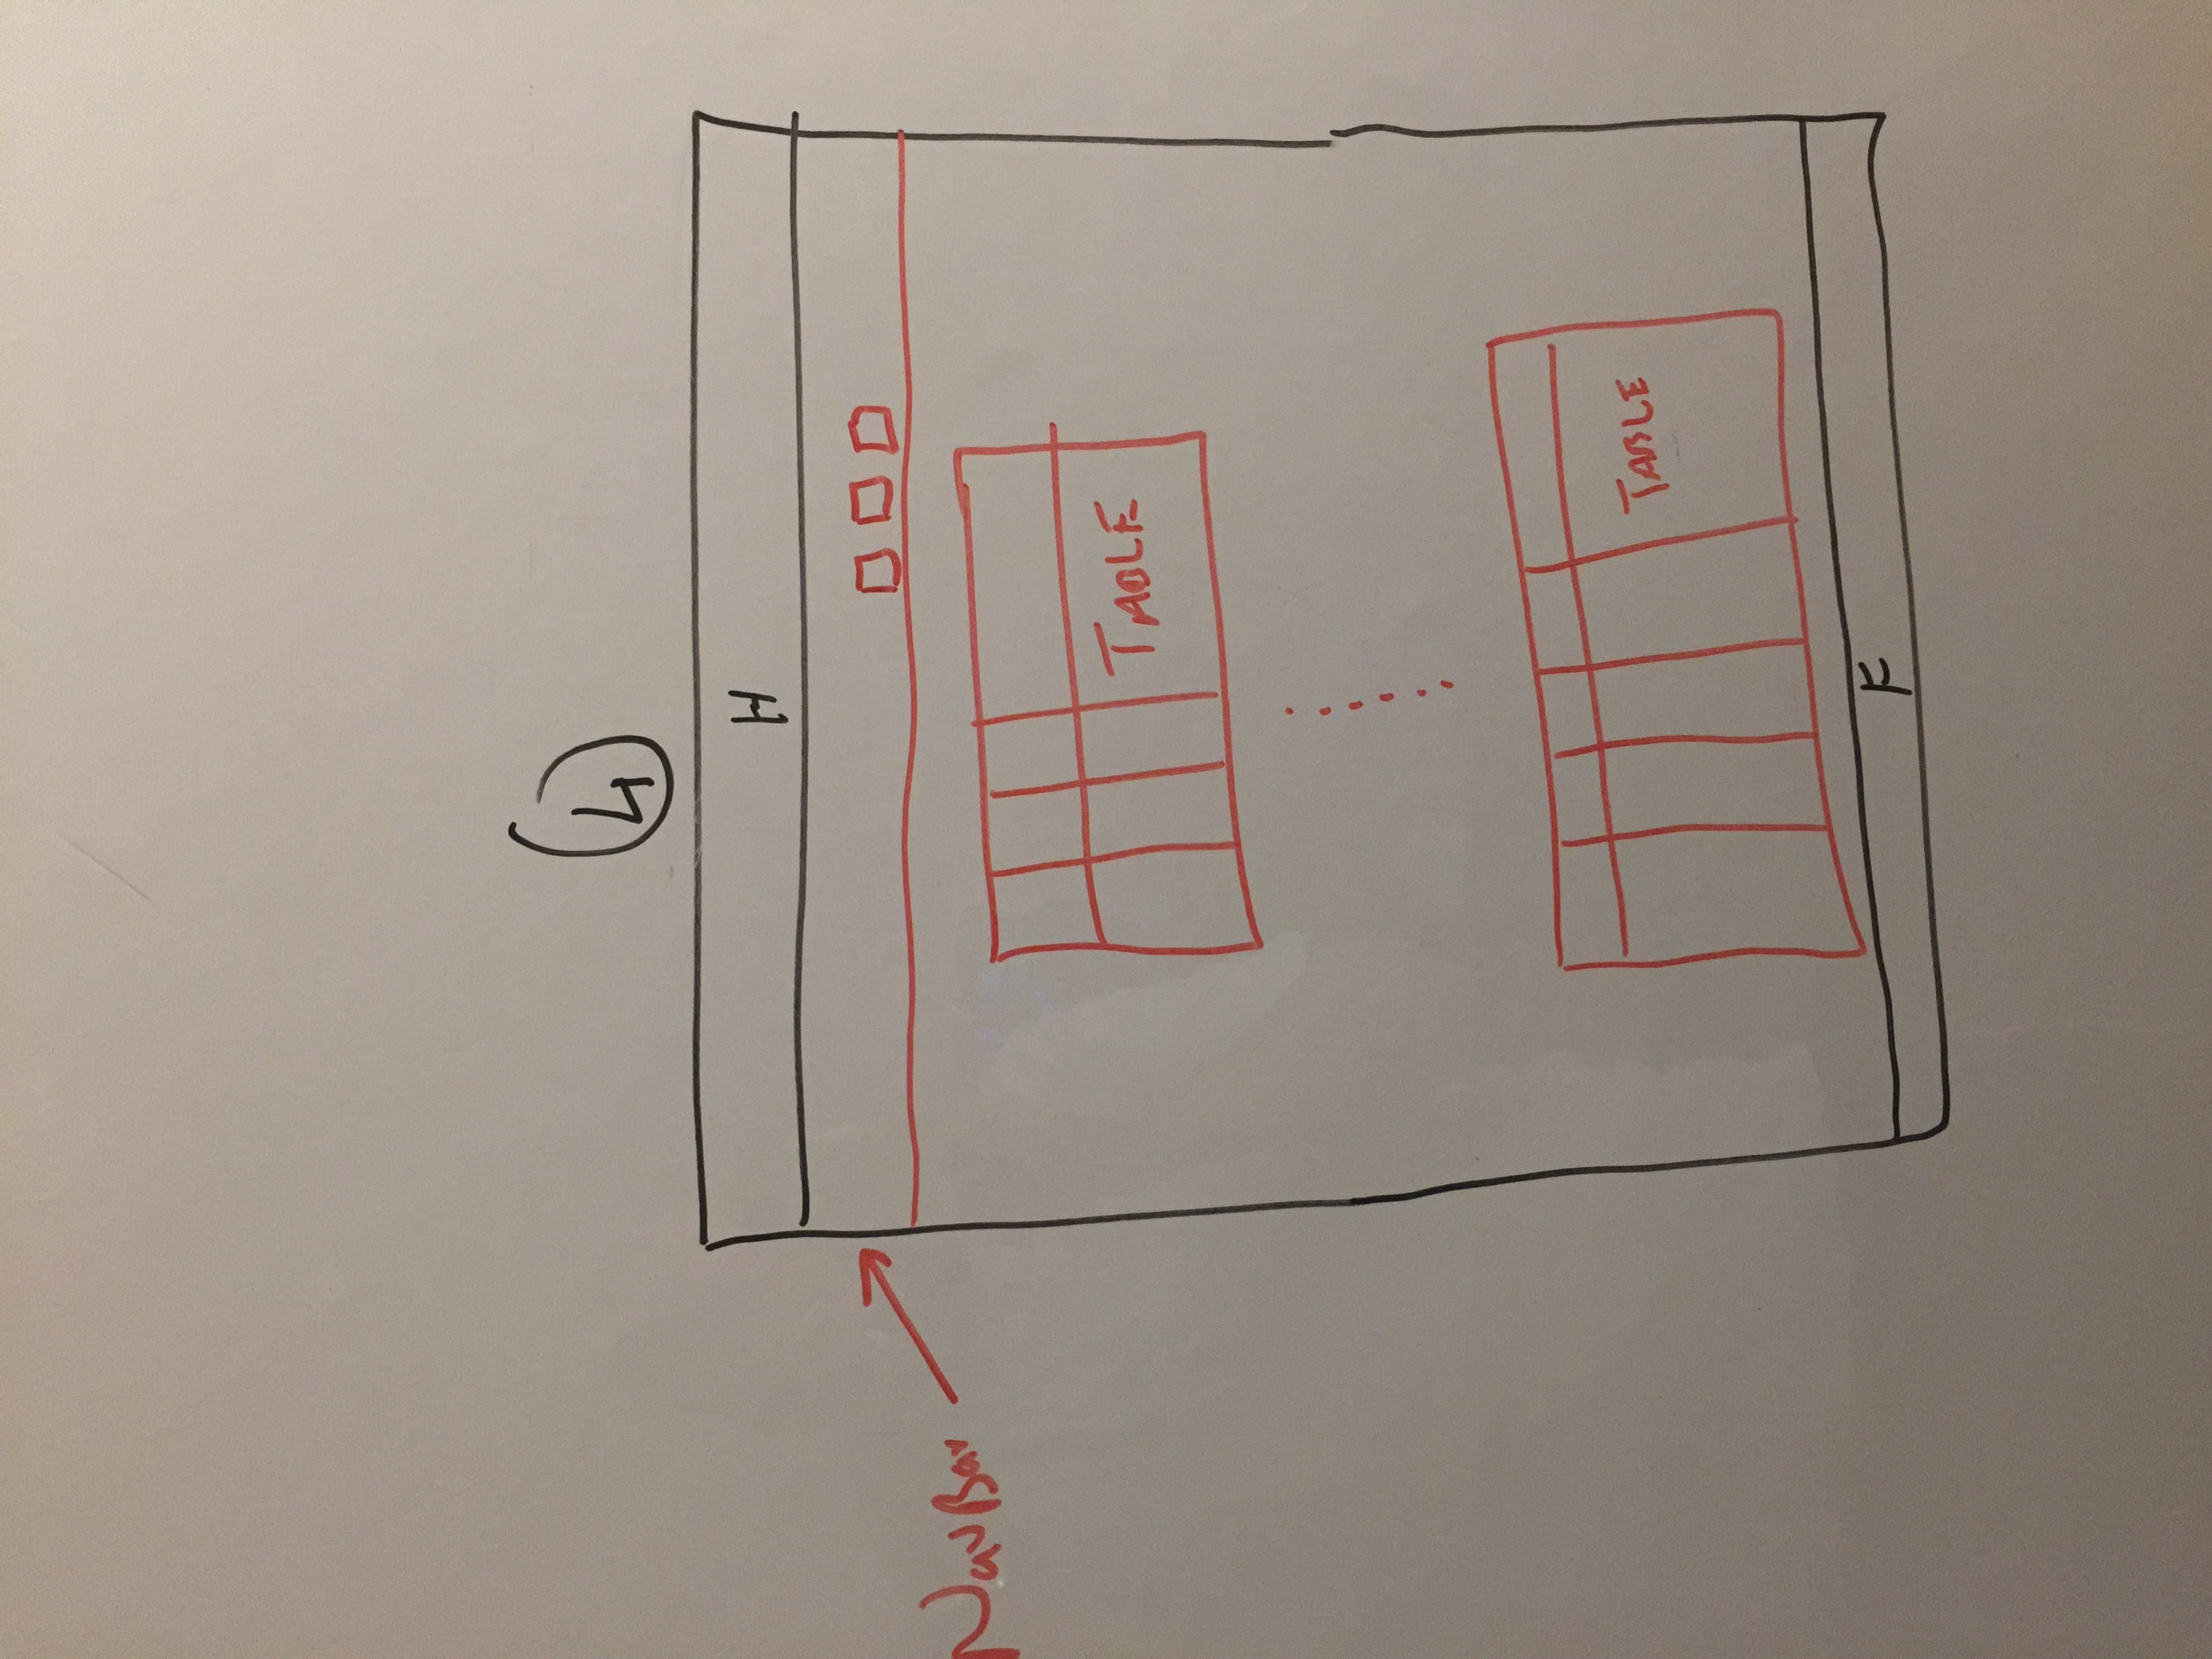 4
H
NavBar
TABLE
TABLE
F